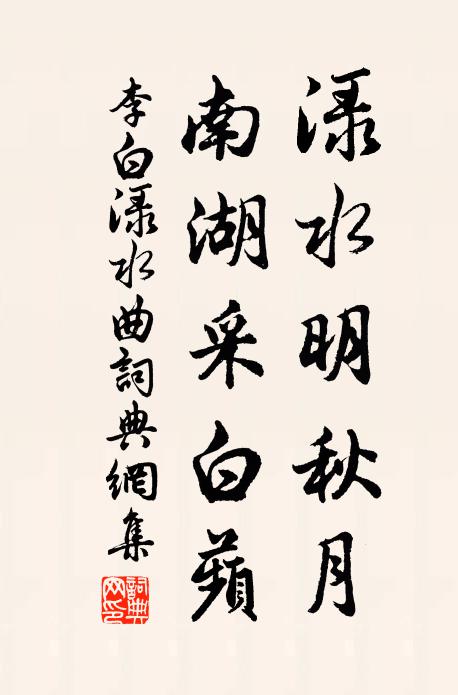 渌水明秋月
南湖采白蘋
李白渌水曲詞典網集
詞典网印